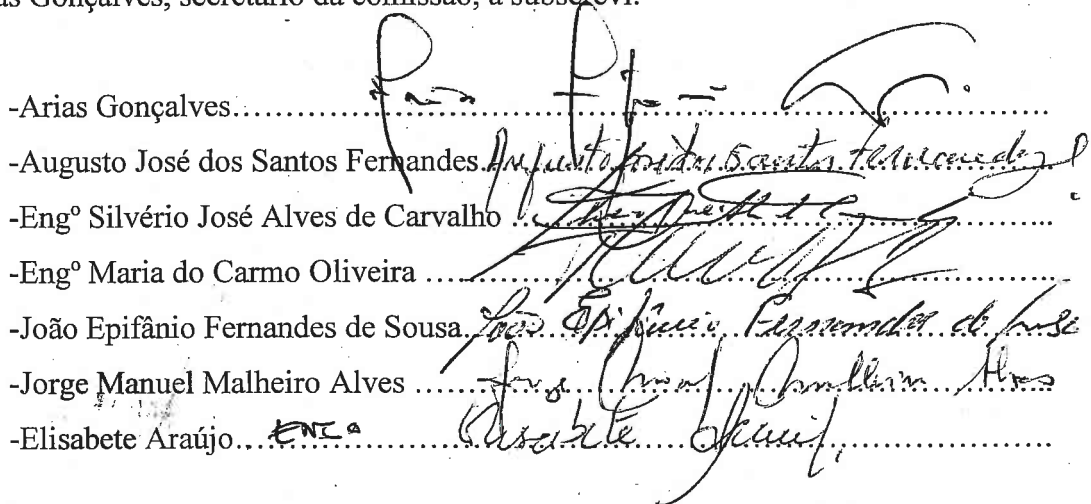 as Gonçalves, secretário da comissão, a subscrevi.
-Arias Gonçalves
-Augusto José dos Santos Fernandes Augusto José dos Santos Fernandes
-Engº Silvério José Alves de Carvalho
-Engº Maria do Carmo Oliveira
-João Epifânio Fernandes de Sousa João Epifânio Fernandes de Sousa
-Jorge Manuel Malheiro Alves Jorge Manuel Malheiro Alves
-Elisabete Araújo Elisabete Araújo